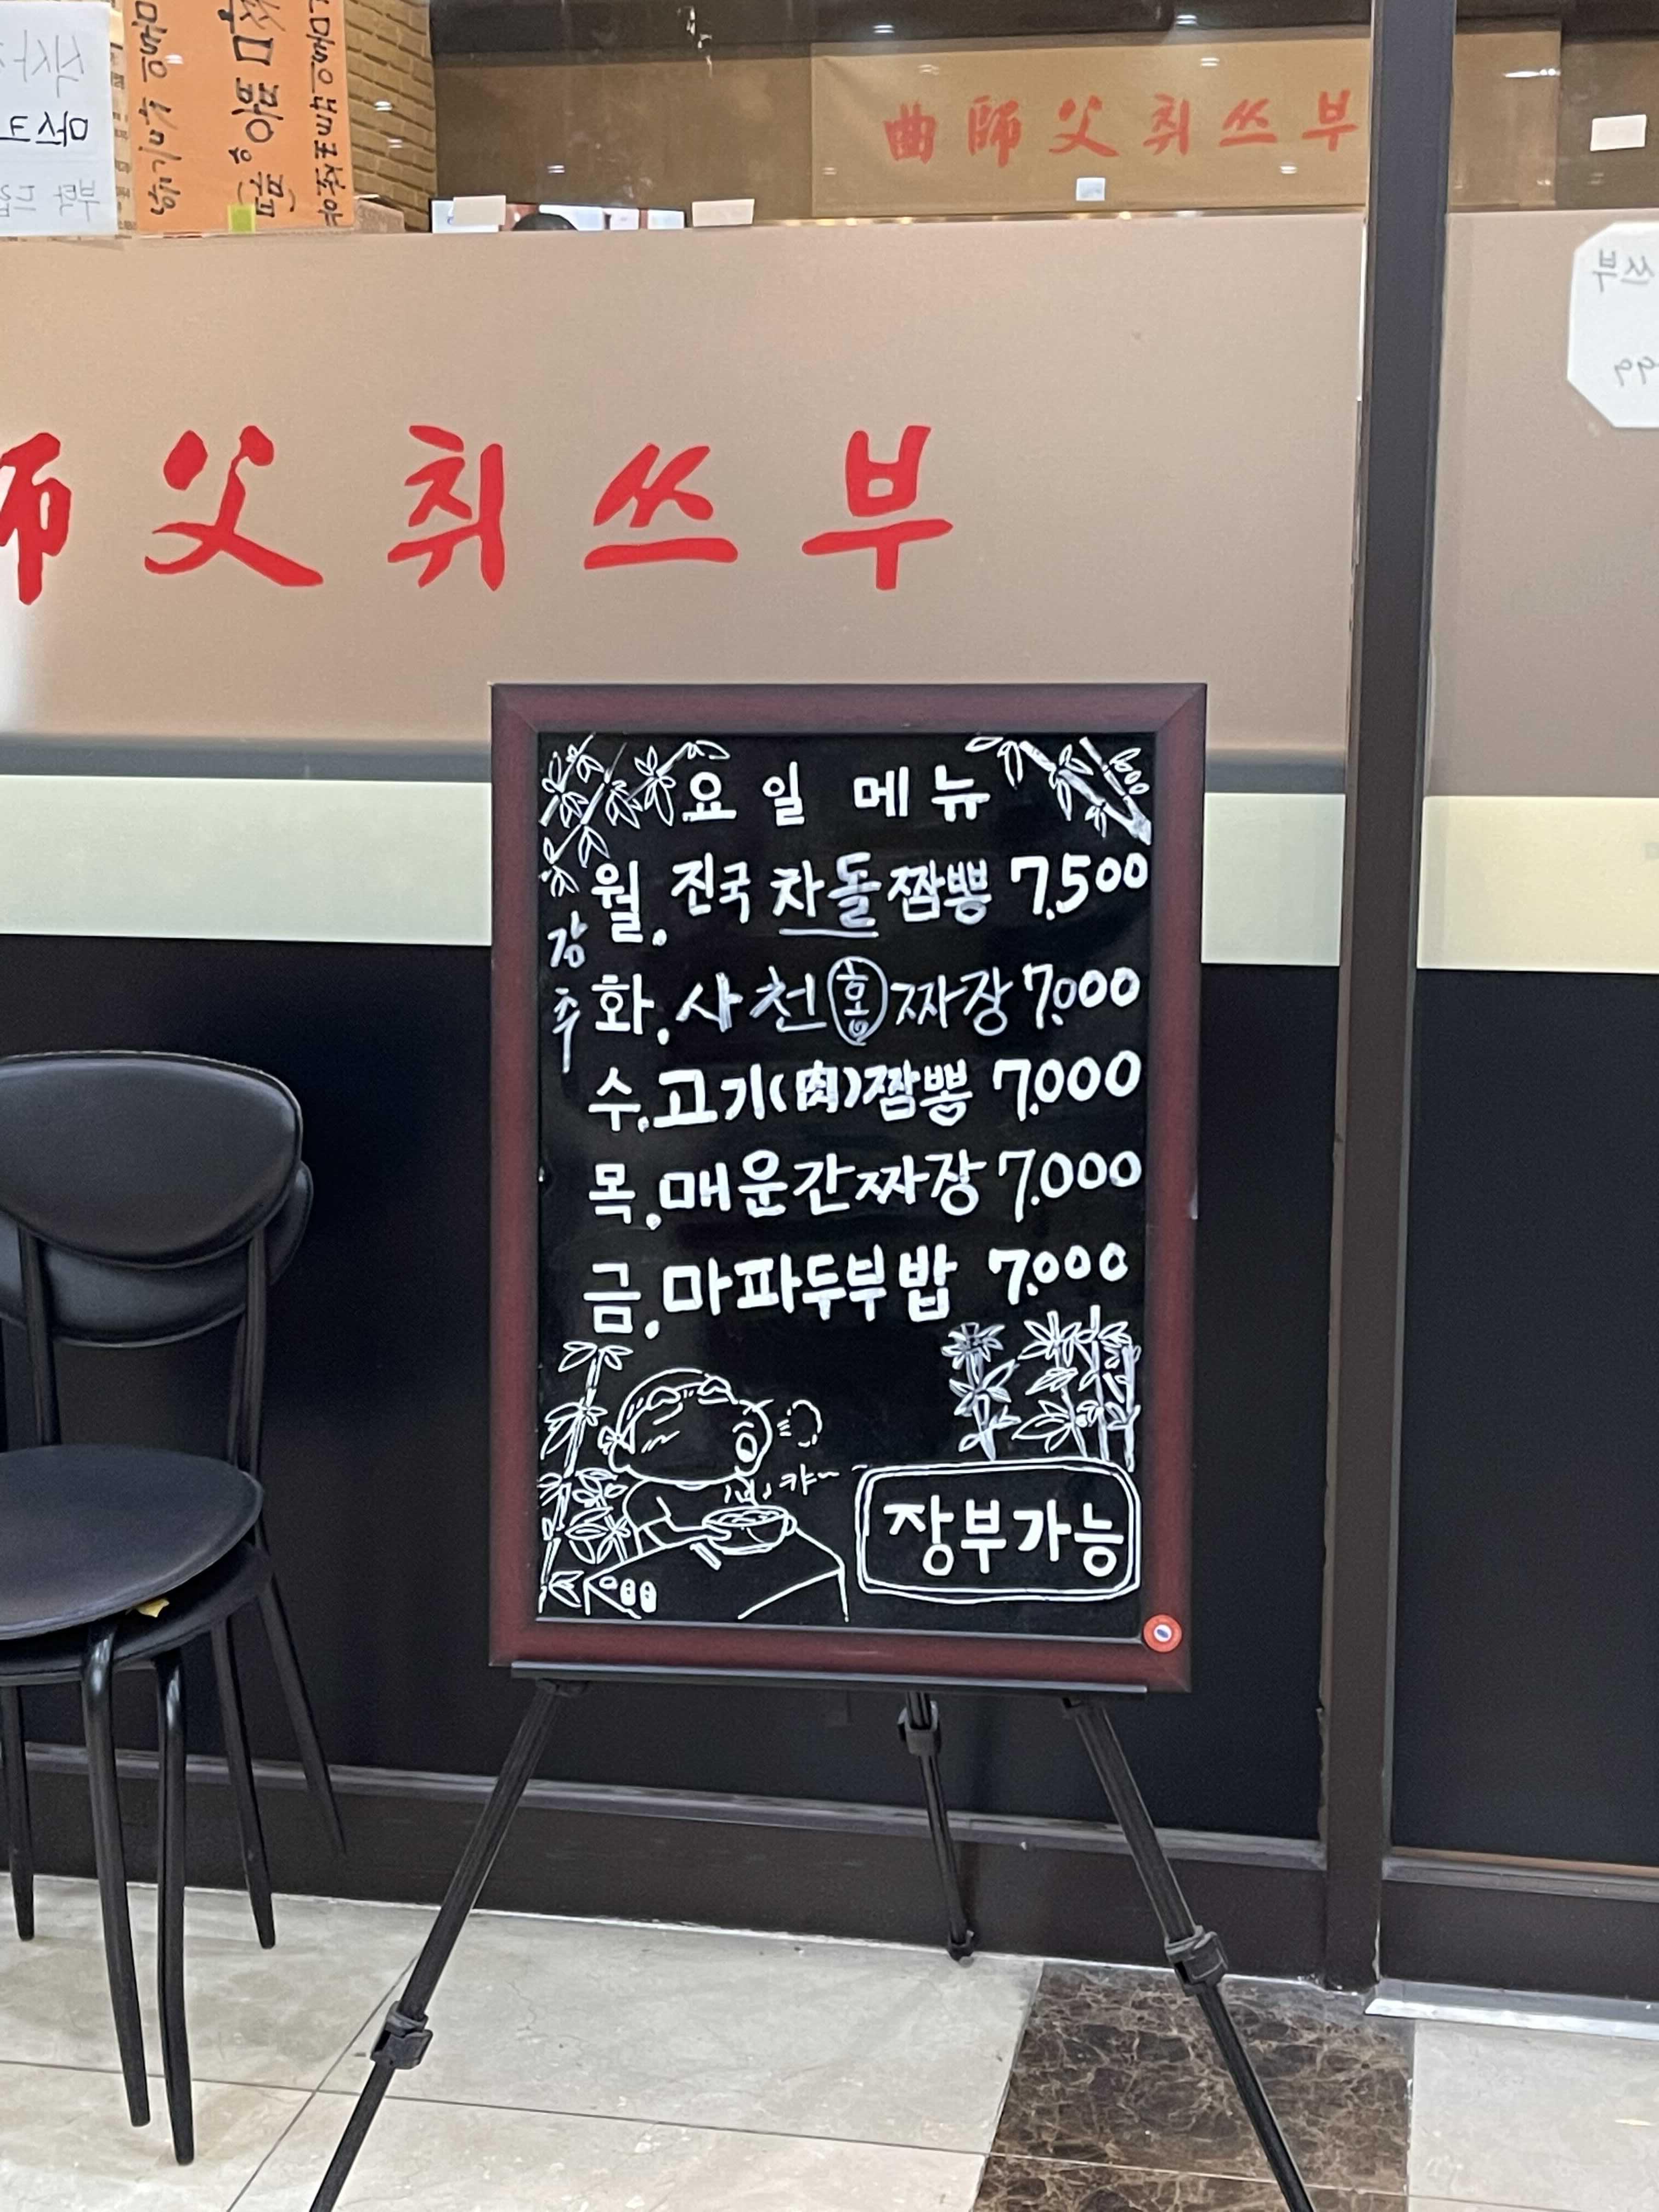 曲師父취쓰부
師父취쓰부
요일 메뉴
월. 진국 차돌짬뽕 7,500
강추
화. 사천홍짜장 7,000
수. 고기(肉)짬뽕 7,000
목. 매운간짜장 7,000
금. 마파두부밥 7,000
캬~
장부가능